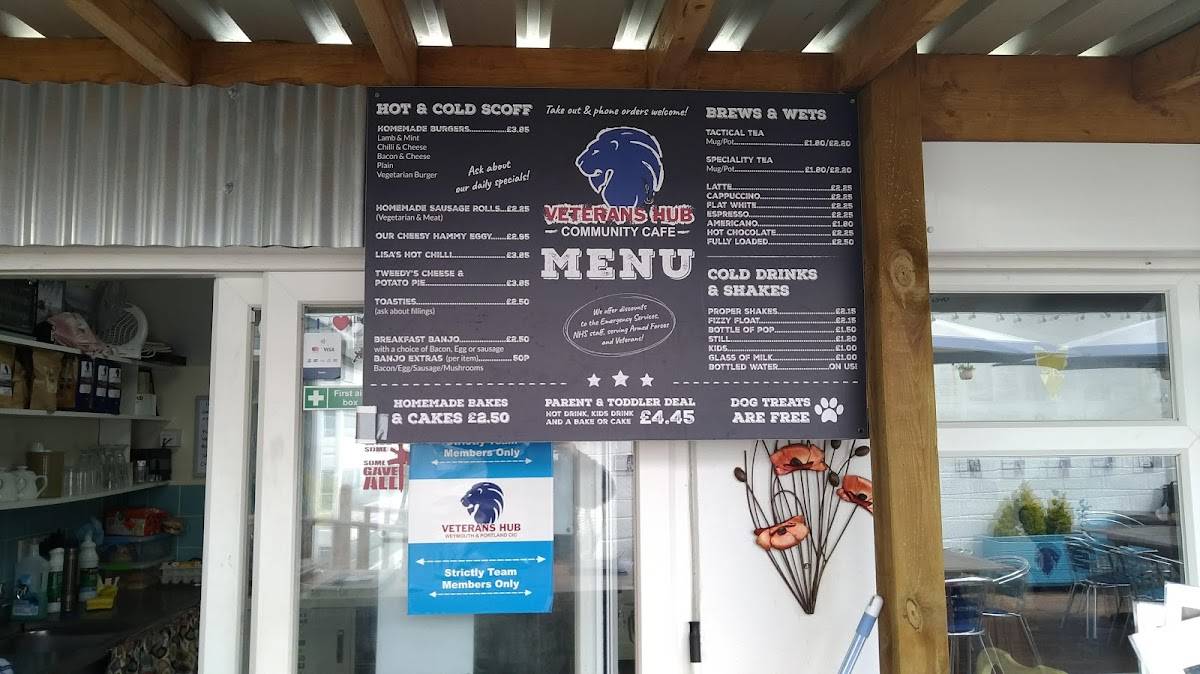 HOT & COLD SCOFF
HOMEMADE BURGERS................£3.85
Lamb & Mint
Chilli & Cheese
Bacon & Cheese
Plain
Vegetarian Burger
Ask about
our daily specials!
HOMEMADE SAUSAGE ROLLS...£2.25
(Vegetarian & Meat)
OUR CHEESY HAMMY EGGY........£2.95
LISA'S HOT CHILLI................£3.25
TWEEDY'S CHEESE &
POTATO PIE................£3.25
TOASTIES................£2.50
(ask about fillings)
BREAKFAST BANJO................£2.50
with a choice of Bacon, Egg or sausage
BANJO EXTRAS (per item)................50P
Bacon/Egg/Sausage/Mushrooms
Take out & phone orders welcome!
VETERANS HUB
COMMUNITY CAFE
MENU
We offer discounts
to the Emergency Services,
NHS staff, serving Armed Forces
and Veterans!
BREWS & WETS
TACTICAL TEA
Mug/Pot................£1.80/£2.20
SPECIALITY TEA
Mug/Pot................£1.80/£2.20
LATTE................£2.25
CAPPUCCINO................£2.25
FLAT WHITE................£2.25
ESPRESSO................£2.25
AMERICANO................£1.80
HOT CHOCOLATE................£2.25
FULLY LOADED................£2.50
COLD DRINKS
& SHAKES
PROPER SHAKES................£2.15
FIZZY FLOAT................£2.15
BOTTLE OF POP................£1.50
STILL................£1.20
KIDS................£1.00
GLASS OF MILK................£1.00
BOTTLED WATER................ON US!
HOMEMADE BAKES
& CAKES £2.50
PARENT & TODDLER DEAL
HOT DRINK, KIDS DRINK
AND A BAKE OR CAKE
£4.45
DOG TREATS
ARE FREE
VISA
First ai
box
SOME
SOME
GAVE
ALL
Strictly Team
Members Only
VETERANS HUB
WEYMOUTH & PORTLAND CIC
Strictly Team
Members Only